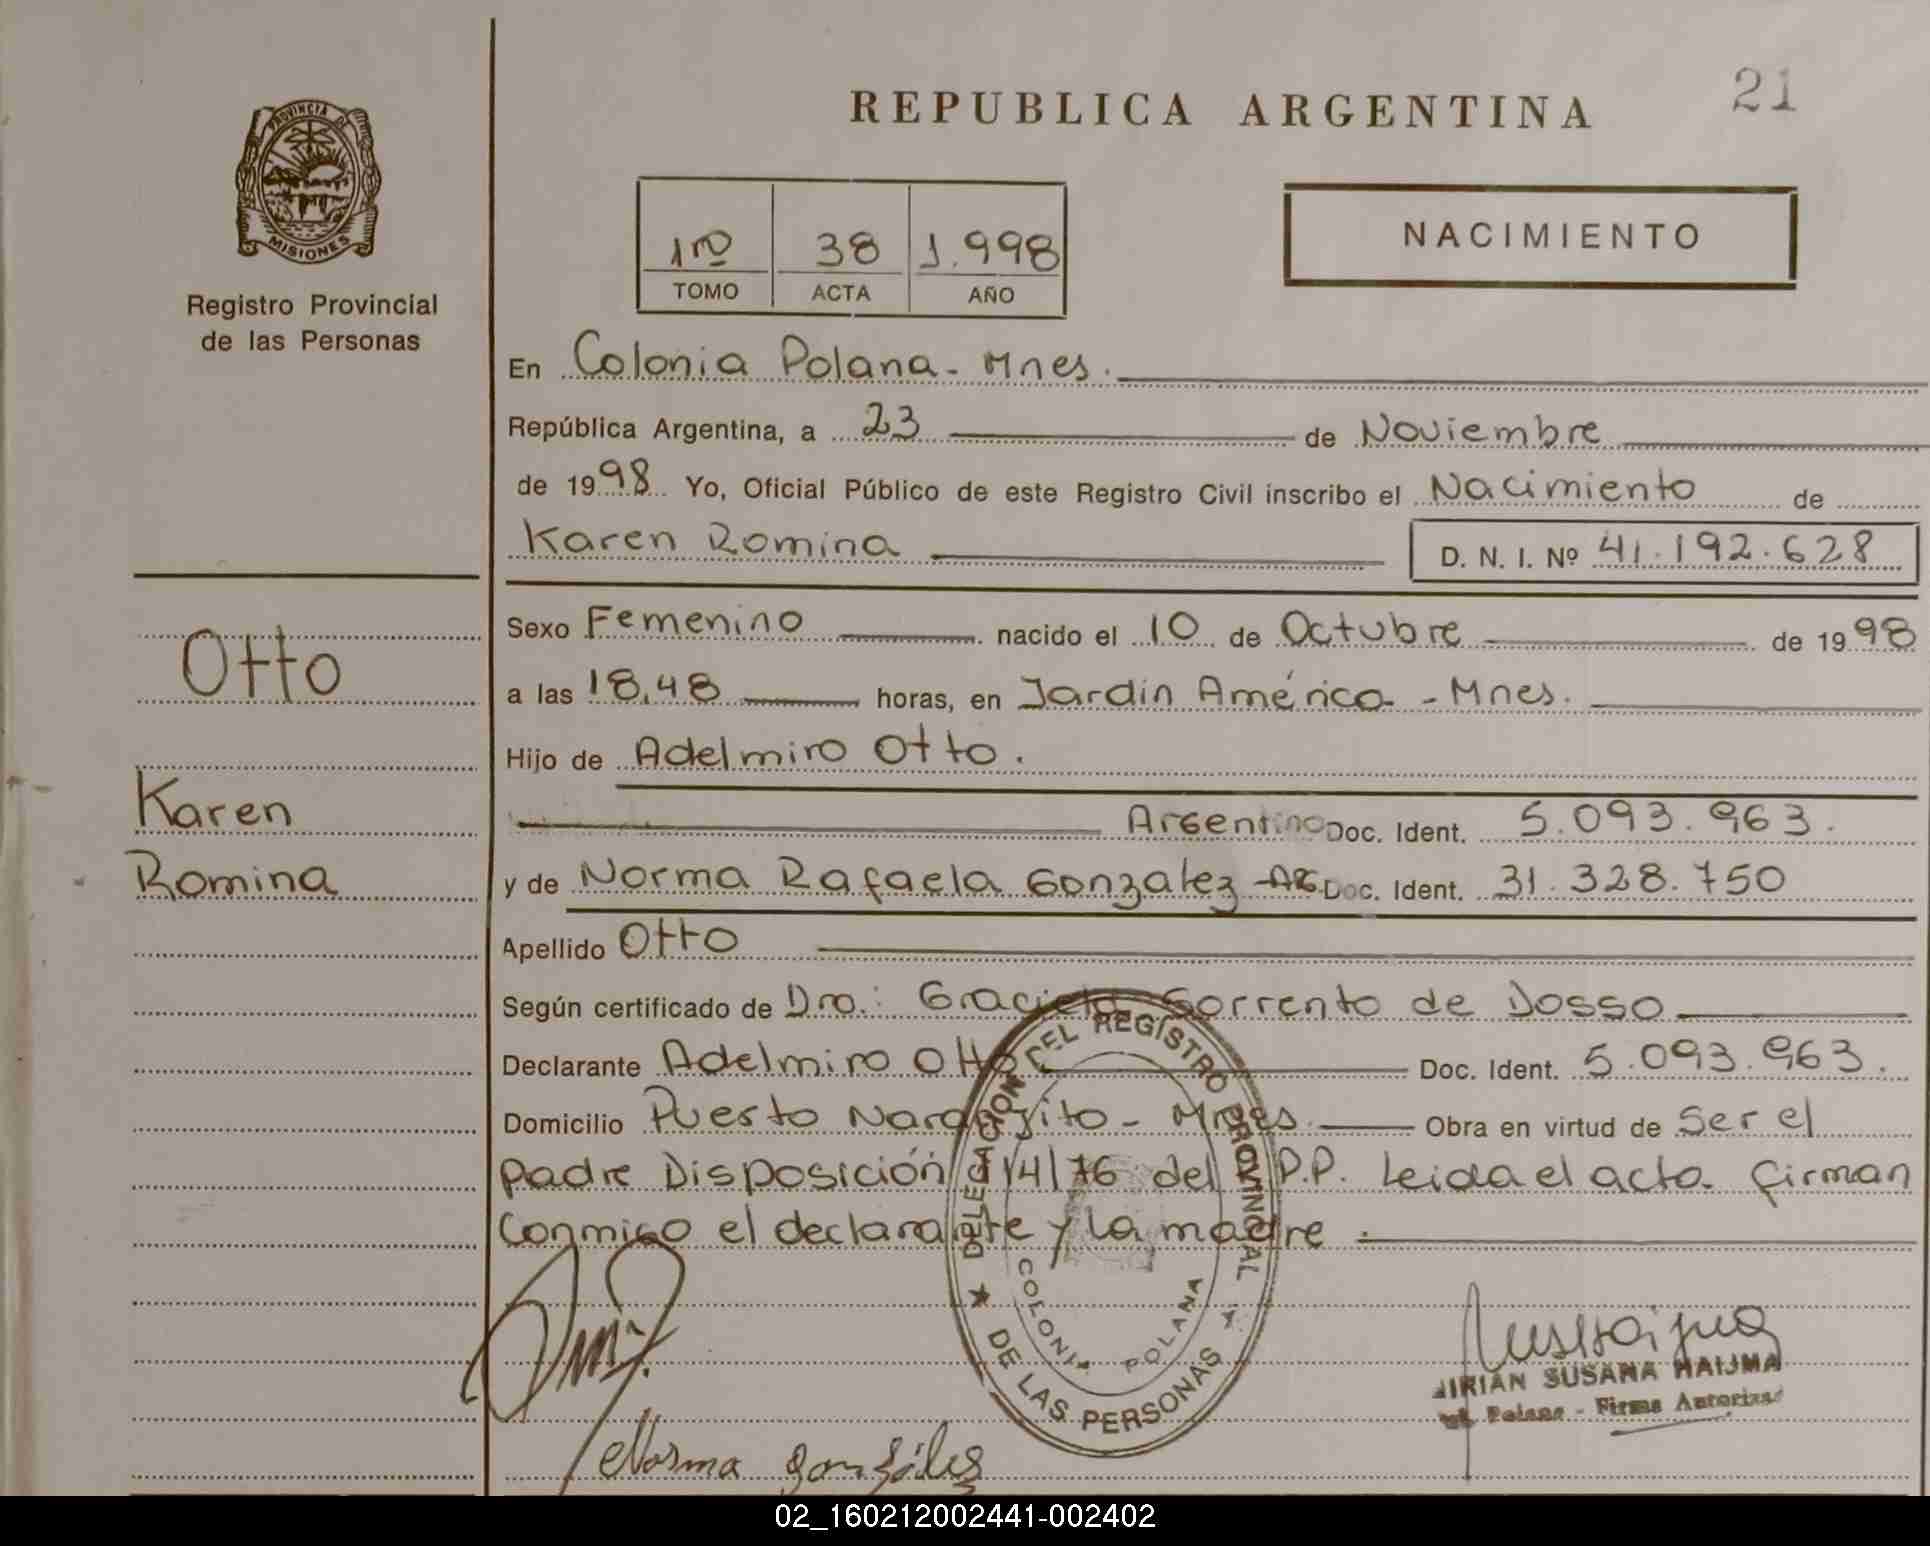 21
REPUBLICA ARGENTINA
PROVINCIA DE
MISIONES
Registro Provincial
de las Personas
1ro 38 1.998
TOMO ACTA AÑO
NACIMIENTO
En Colonia Polana - Mnes.
República Argentina, a 23 de Noviembre
de 1998 Yo, Oficial Público de este Registro Civil inscribo el Nacimiento de
Karen Romina D. N. I. Nº 41.192.628
Otto
Karen
Romina
Sexo Femenino nacido el 10 de Octubre de 1998
a las 18,48 horas, en Jardin América - Mnes.
Hijo de Adelmiro Otto.
Argentino Doc. Ident. 5.093.963.
y de Norma Rafaela Gonzalez - Doc. Ident. 31.328.750
Apellido Otto
Según certificado de Dra.: Graciela Sorrento de Dosso
Declarante Adelmiro Otto Doc. Ident. 5.093.963.
Domicilio Puerto Naranjito - Mnes. Obra en virtud de Ser el
padre Disposición 14/76 del P.P. Leida el acta firman
conmigo el declarante y la madre.
DELEGACION DEL REGISTRO PROVINCIAL
DE LAS PERSONAS
COLONIA POLANA
SUSANA HAIJMA
Polana - Firma
Norma González
02_160212002441-002402